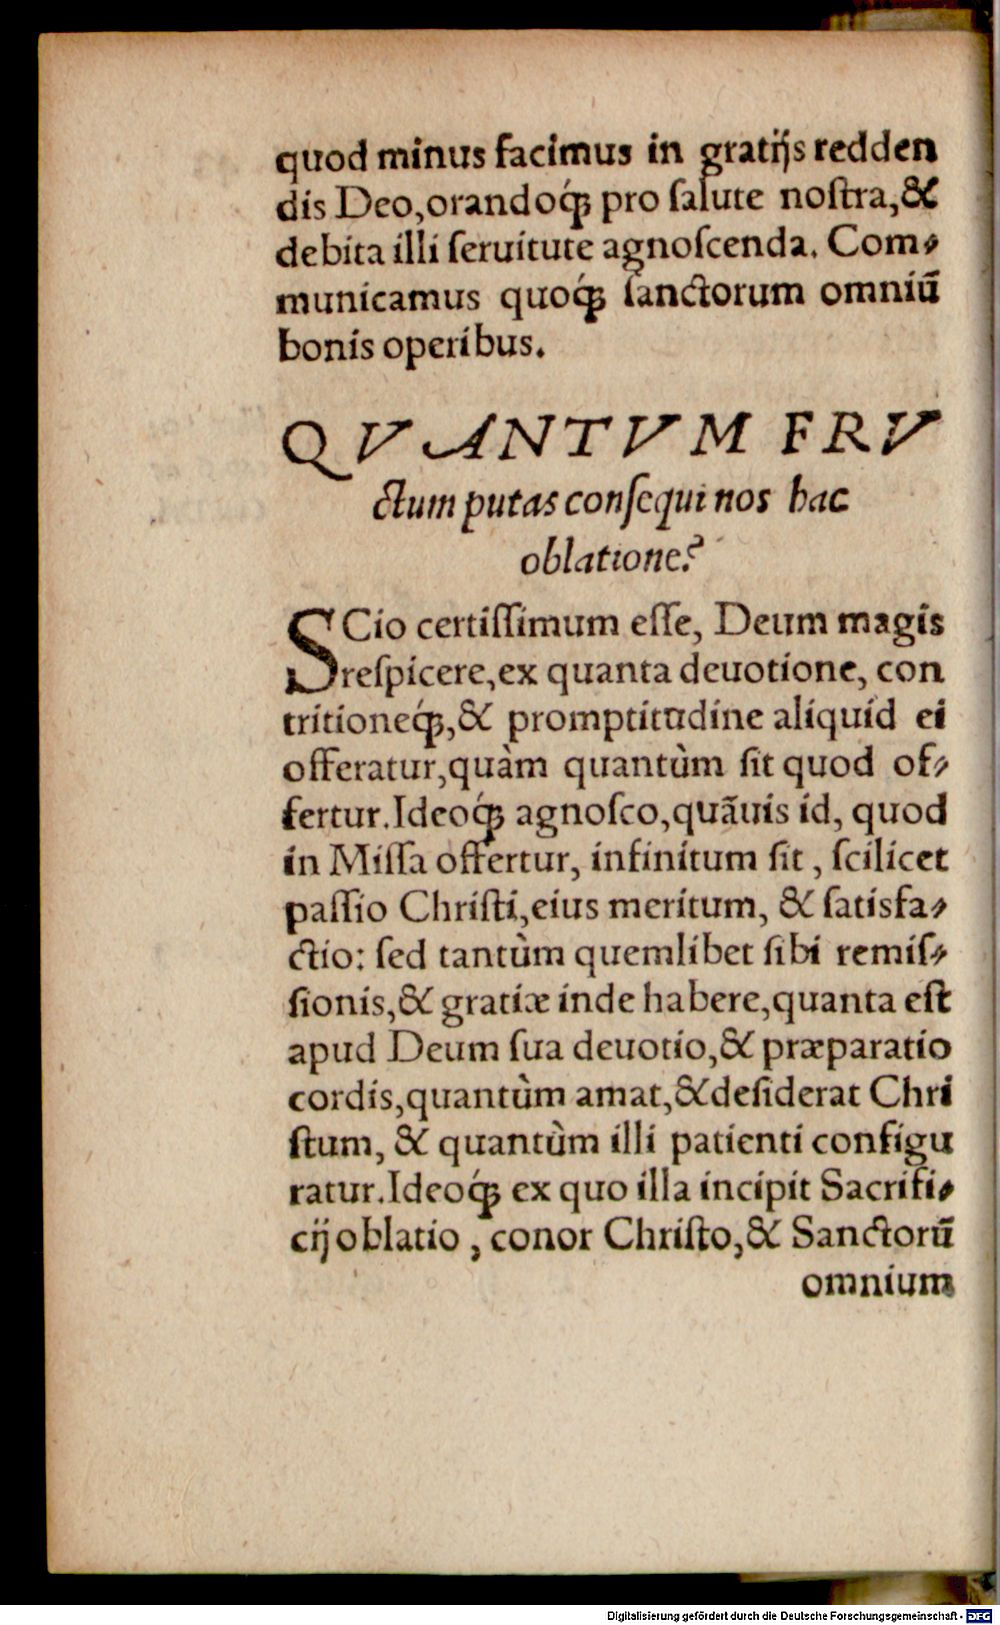 quod minus facimus in gratijs redden
dis Deo,orandoq́ꝫ pro ſalute noſtra,&
debita illi ſeruitute agnoſcenda. Com-
municamus quoq́ꝫ ſanctorum omniũ
bonis operibus.
QVANTVM FRV
ctum putas conſequi nos hac
oblatione?
SCio certiſſimum eſſe, Deum magis
reſpicere,ex quanta deuotione, con
tritioneq́ꝫ,& promptitudine aliquid ei
offeratur,quàm quantùm ſit quod of-
fertur.Ideoq́ꝫ agnoſco,quãuis id, quod
in Miſſa offertur, infinitum ſit, ſcilicet
paſſio Chriſti,eius meritum, & ſatisfa-
ctio: ſed tantùm quemlibet ſibi remiſ-
ſionis,& gratiæ inde habere,quanta eſt
apud Deum ſua deuotio,& præparatio
cordis,quantùm amat,&deſiderat Chri
ſtum, & quantùm illi patienti configu
ratur.Ideoq́ꝫ ex quo illa incipit Sacrifi-
cij oblatio, conor Chriſto,& Sanctorũ
omnium
Digitalisierung gefördert durch die Deutsche Forschungsgemeinschaft - DFG